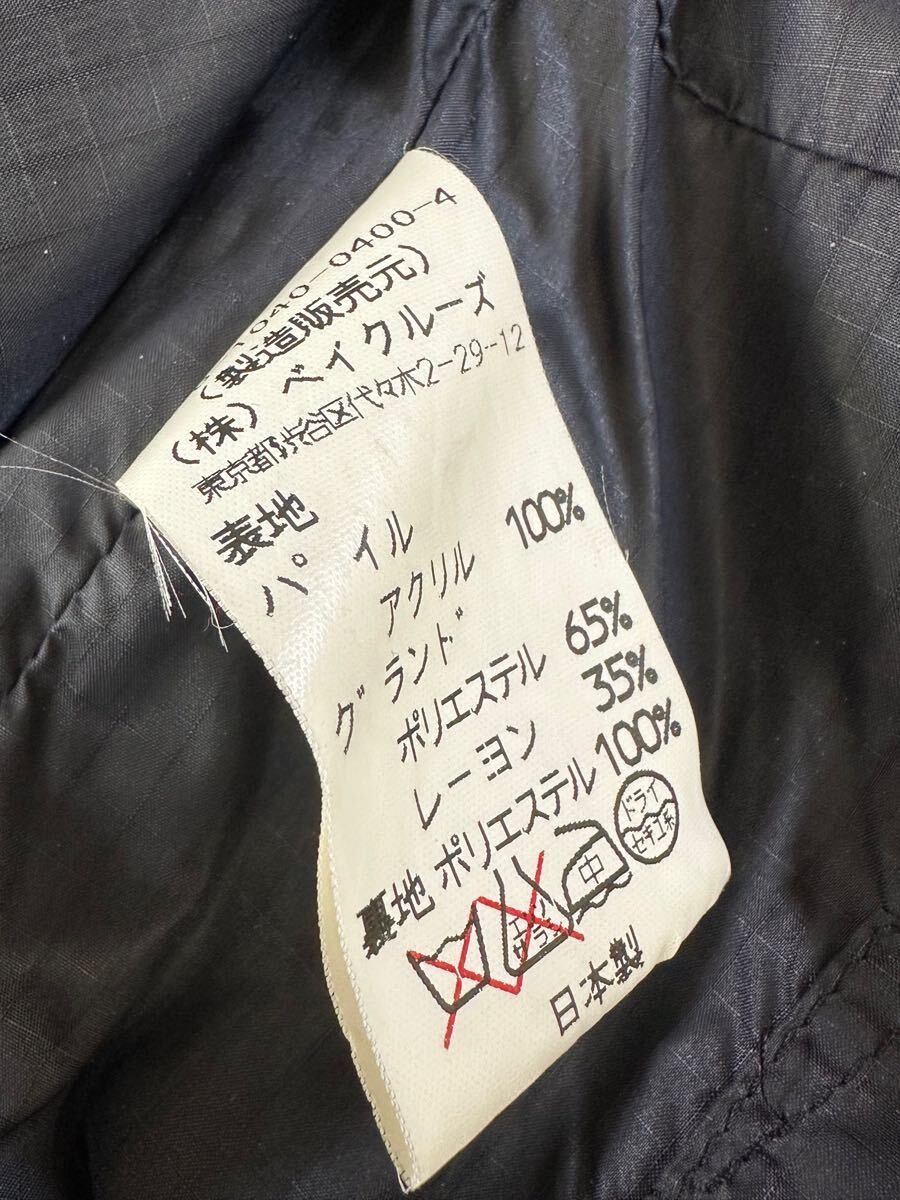 040-0400-4
(製造販売元)
(株)ベイクルーズ
東京都渋谷区代々木2-29-12
表地
パイル
アクリル 100%
グランド
ポリエステル 65%
レーヨン 35%
裏地 ポリエステル 100%
エンソサラシ 中 ドライ セキユ系
日本製